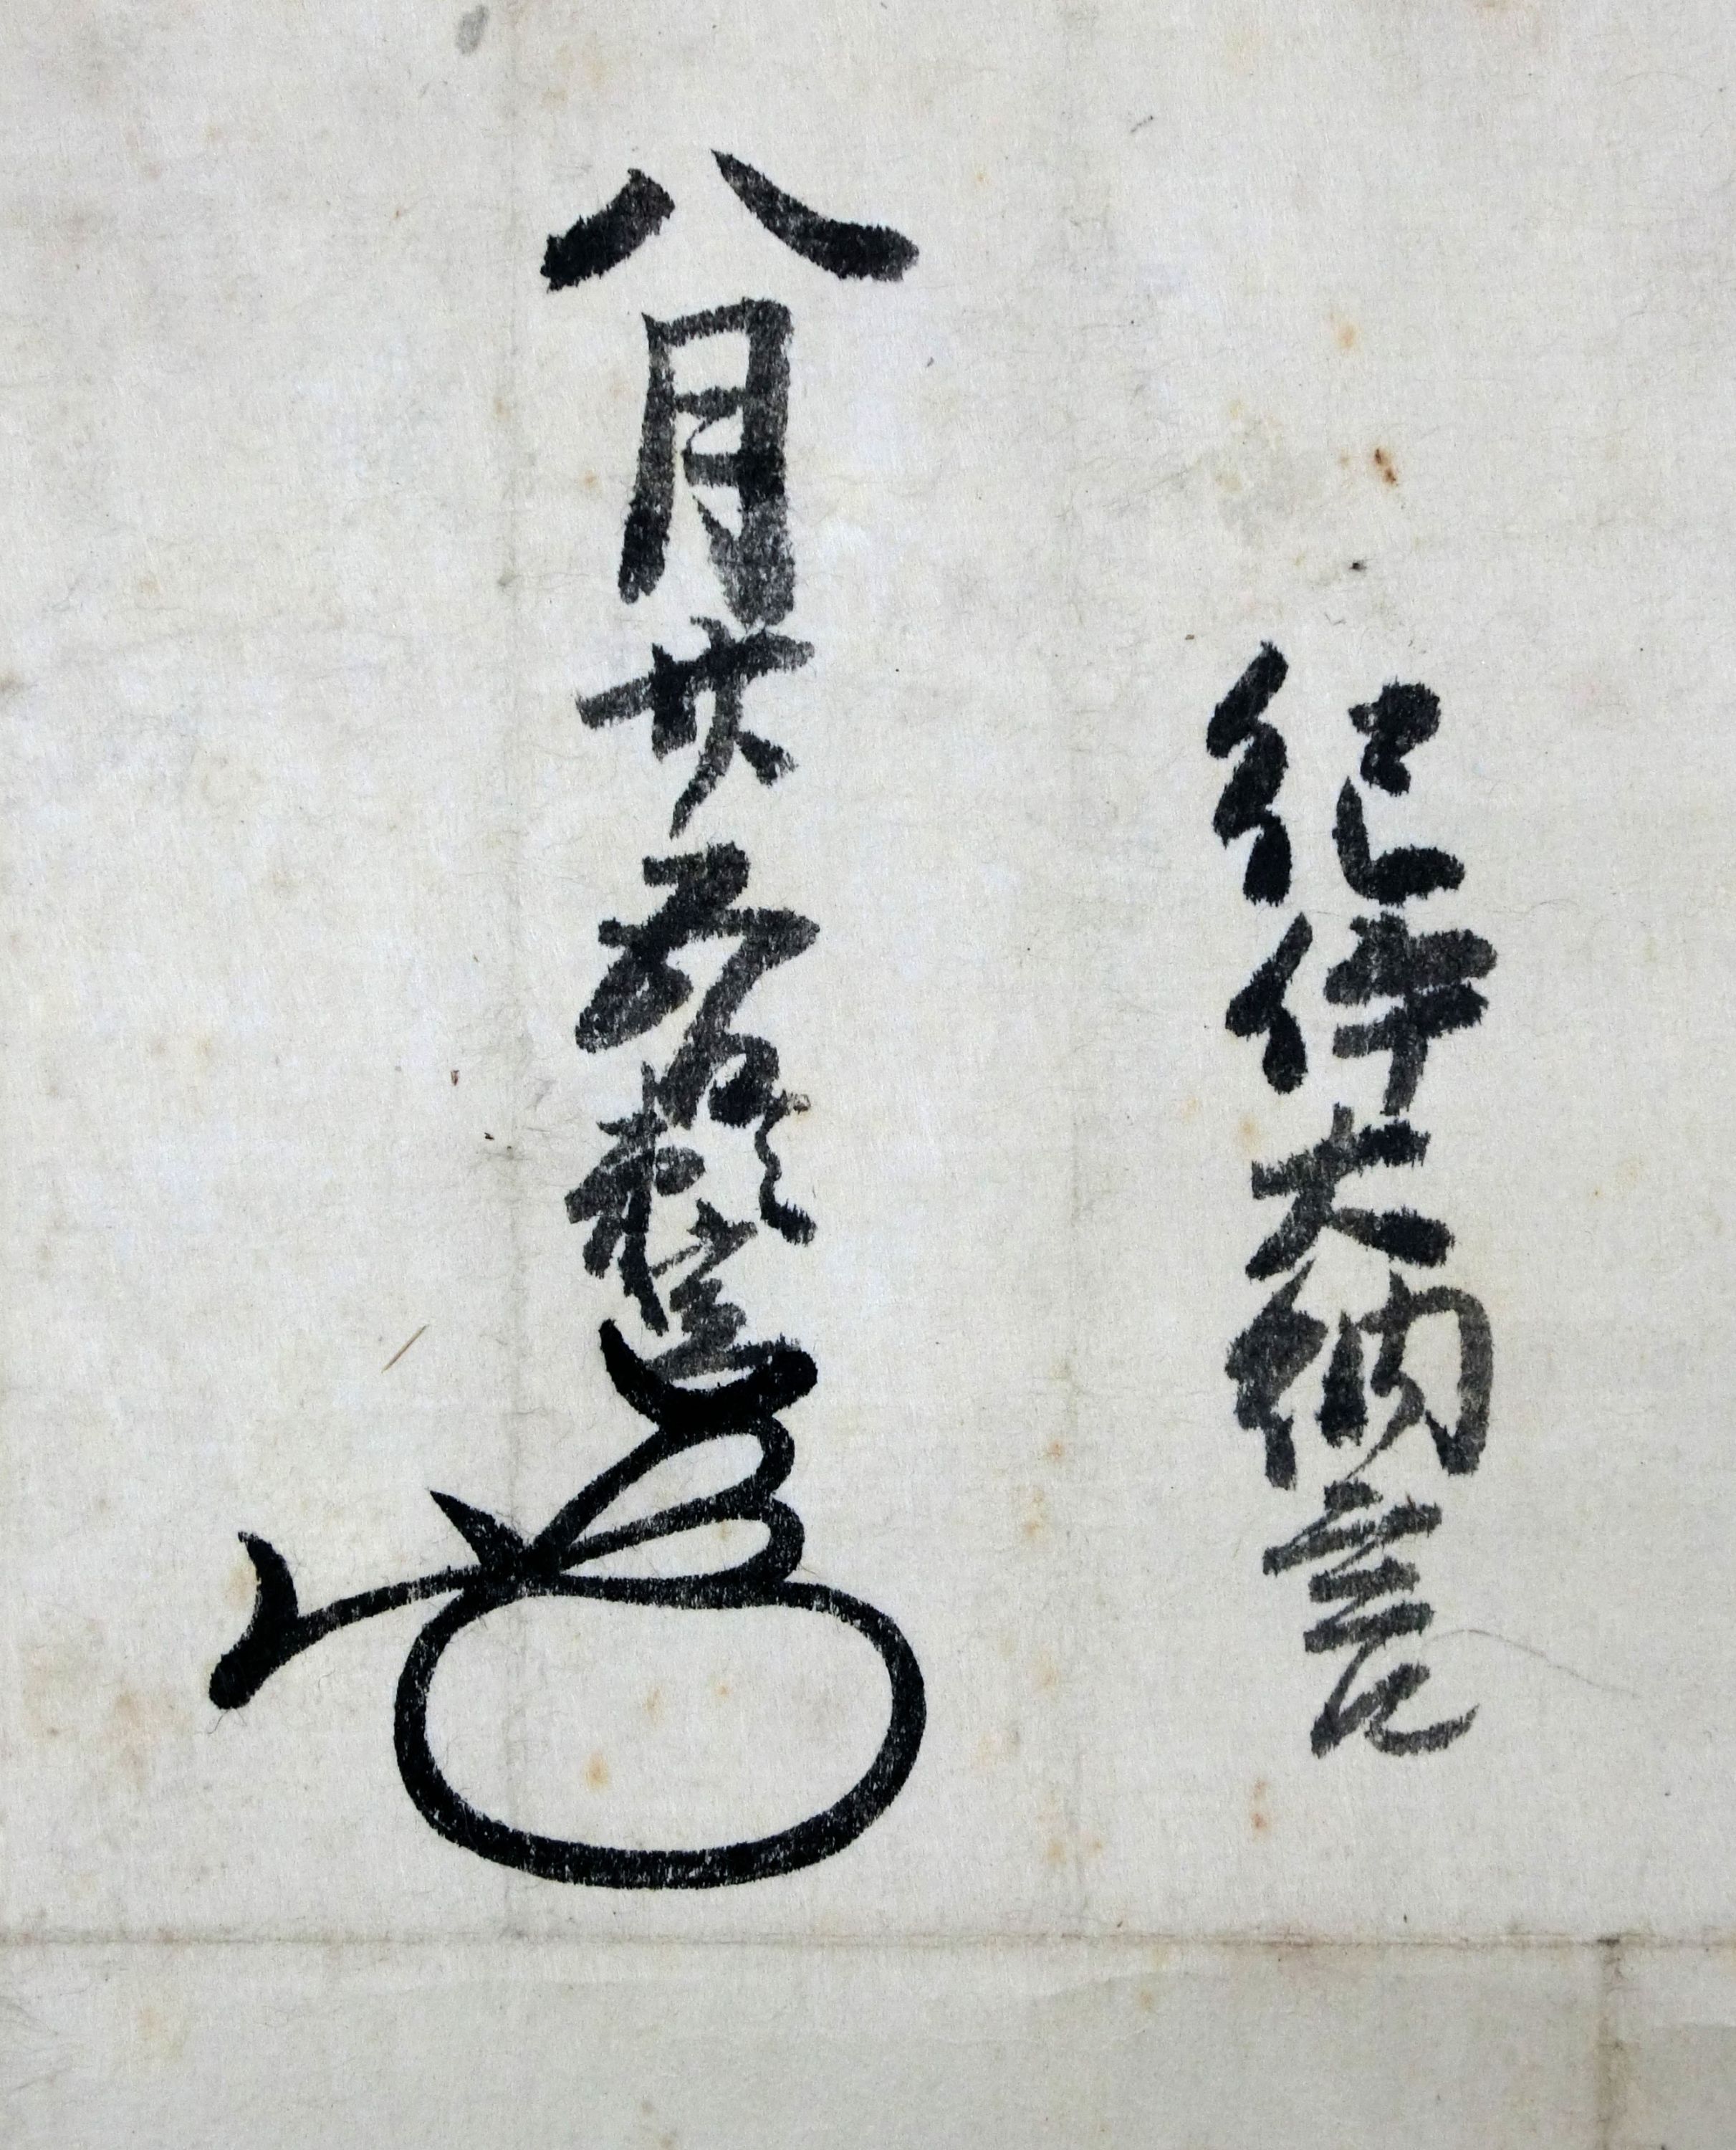 紀伊大納言
八月廿五日頼宣